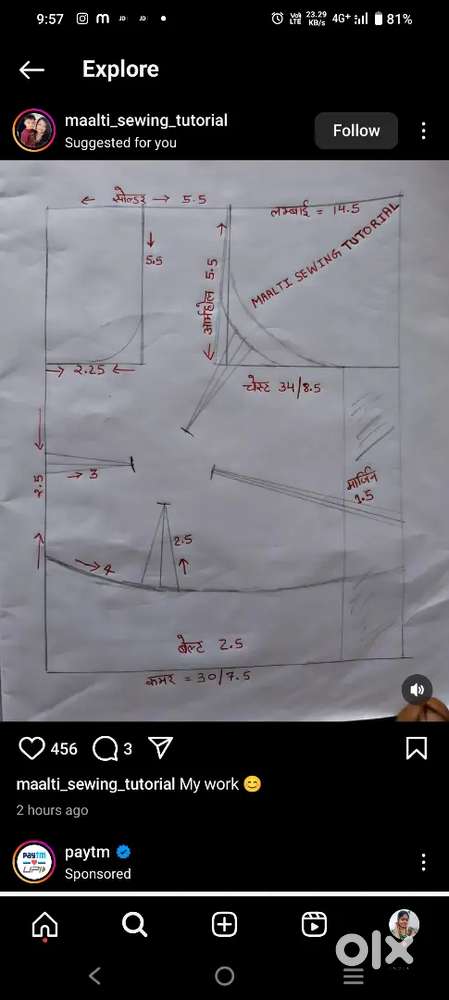 9:57
VoI LTE 23.29 KB/s 4G+ 81%
Explore
maalti_sewing_tutorial
Suggested for you
Follow
← सोल्डर → 5.5
लम्बाई = 14.5
MAALTI SEWING TUTORIAL
5.5
आर्महोल 5.5
2.25
चेस्ट 34/8.5
2.5
3
मार्जिन
1.5
2.5
4
बेल्ट 2.5
कमर = 30/7.5
456 3
maalti_sewing_tutorial My work 😊
2 hours ago
paytm
Sponsored
olx
INDIA